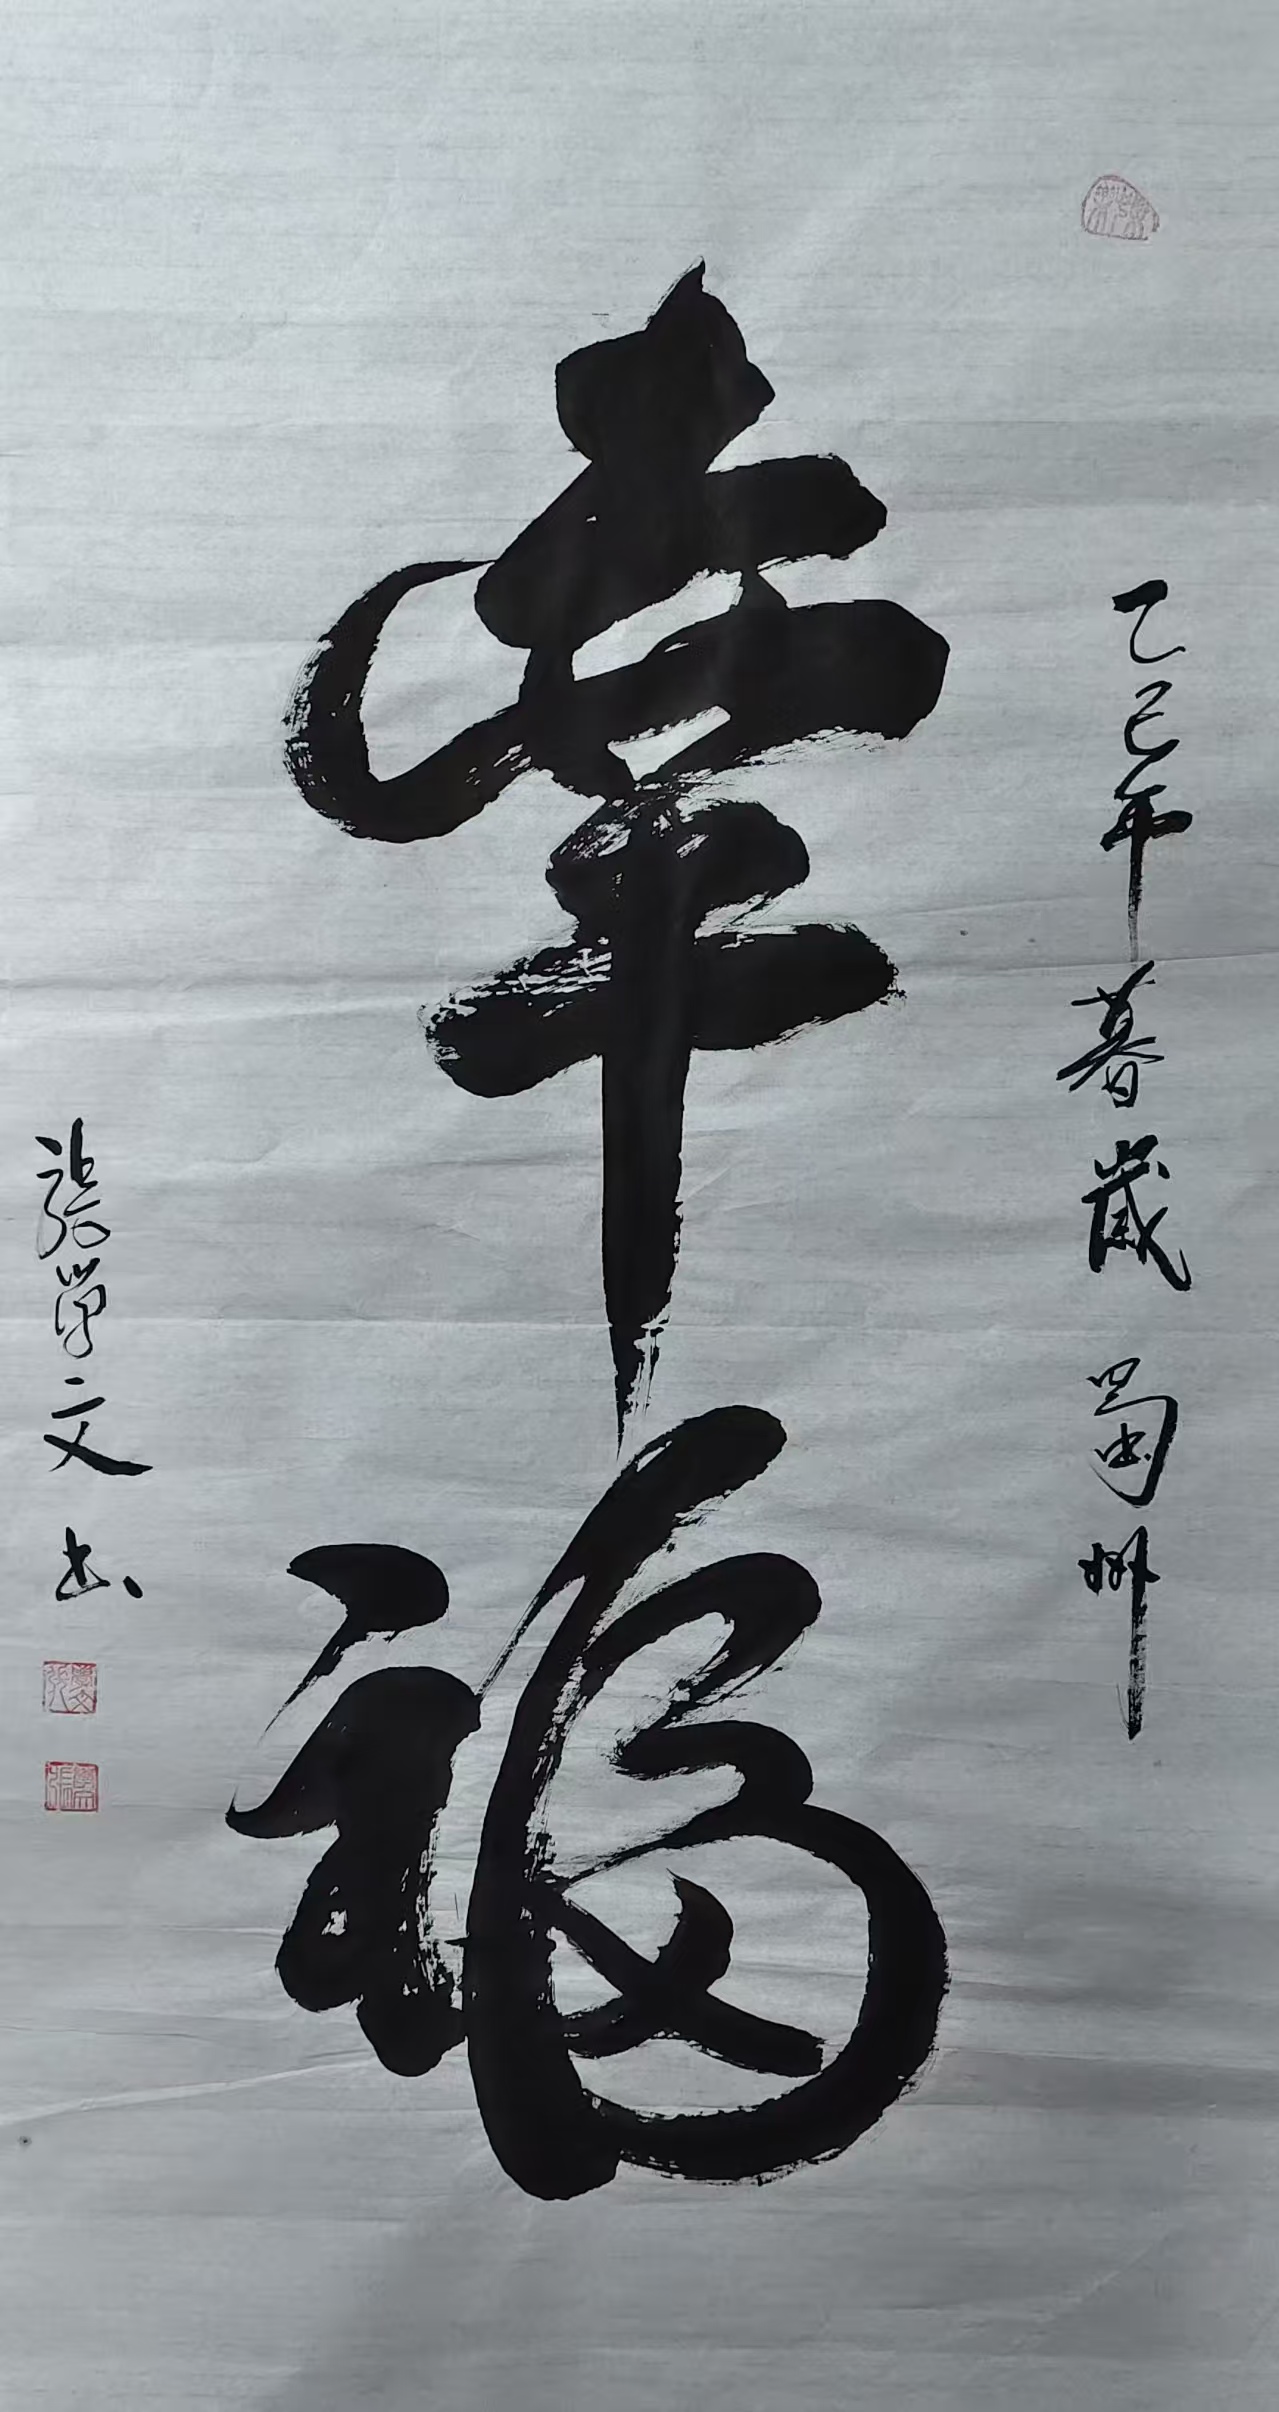 乙巳年暮歲 蜀州
幸福
張學文 书